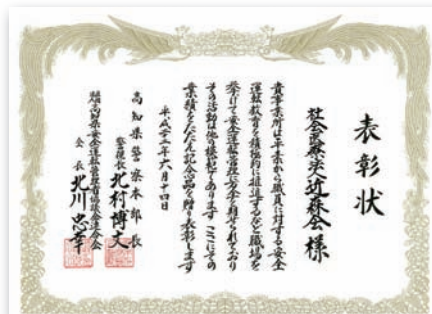 表彰状
社会医療法人近森会様
貴事業所は平素から職員に対する安全
運転教育を積極的に推進するなど職場を
挙げて安全運転管理に万全を期せられており
その活動は他の模範であります ここにその
業績をたたえ記念品を贈り表彰します
平成二十三年六月十四日
高知県警察本部長
警視長 北村博文
高知県安全運転管理者協議会連合会
会長 北川忠幸